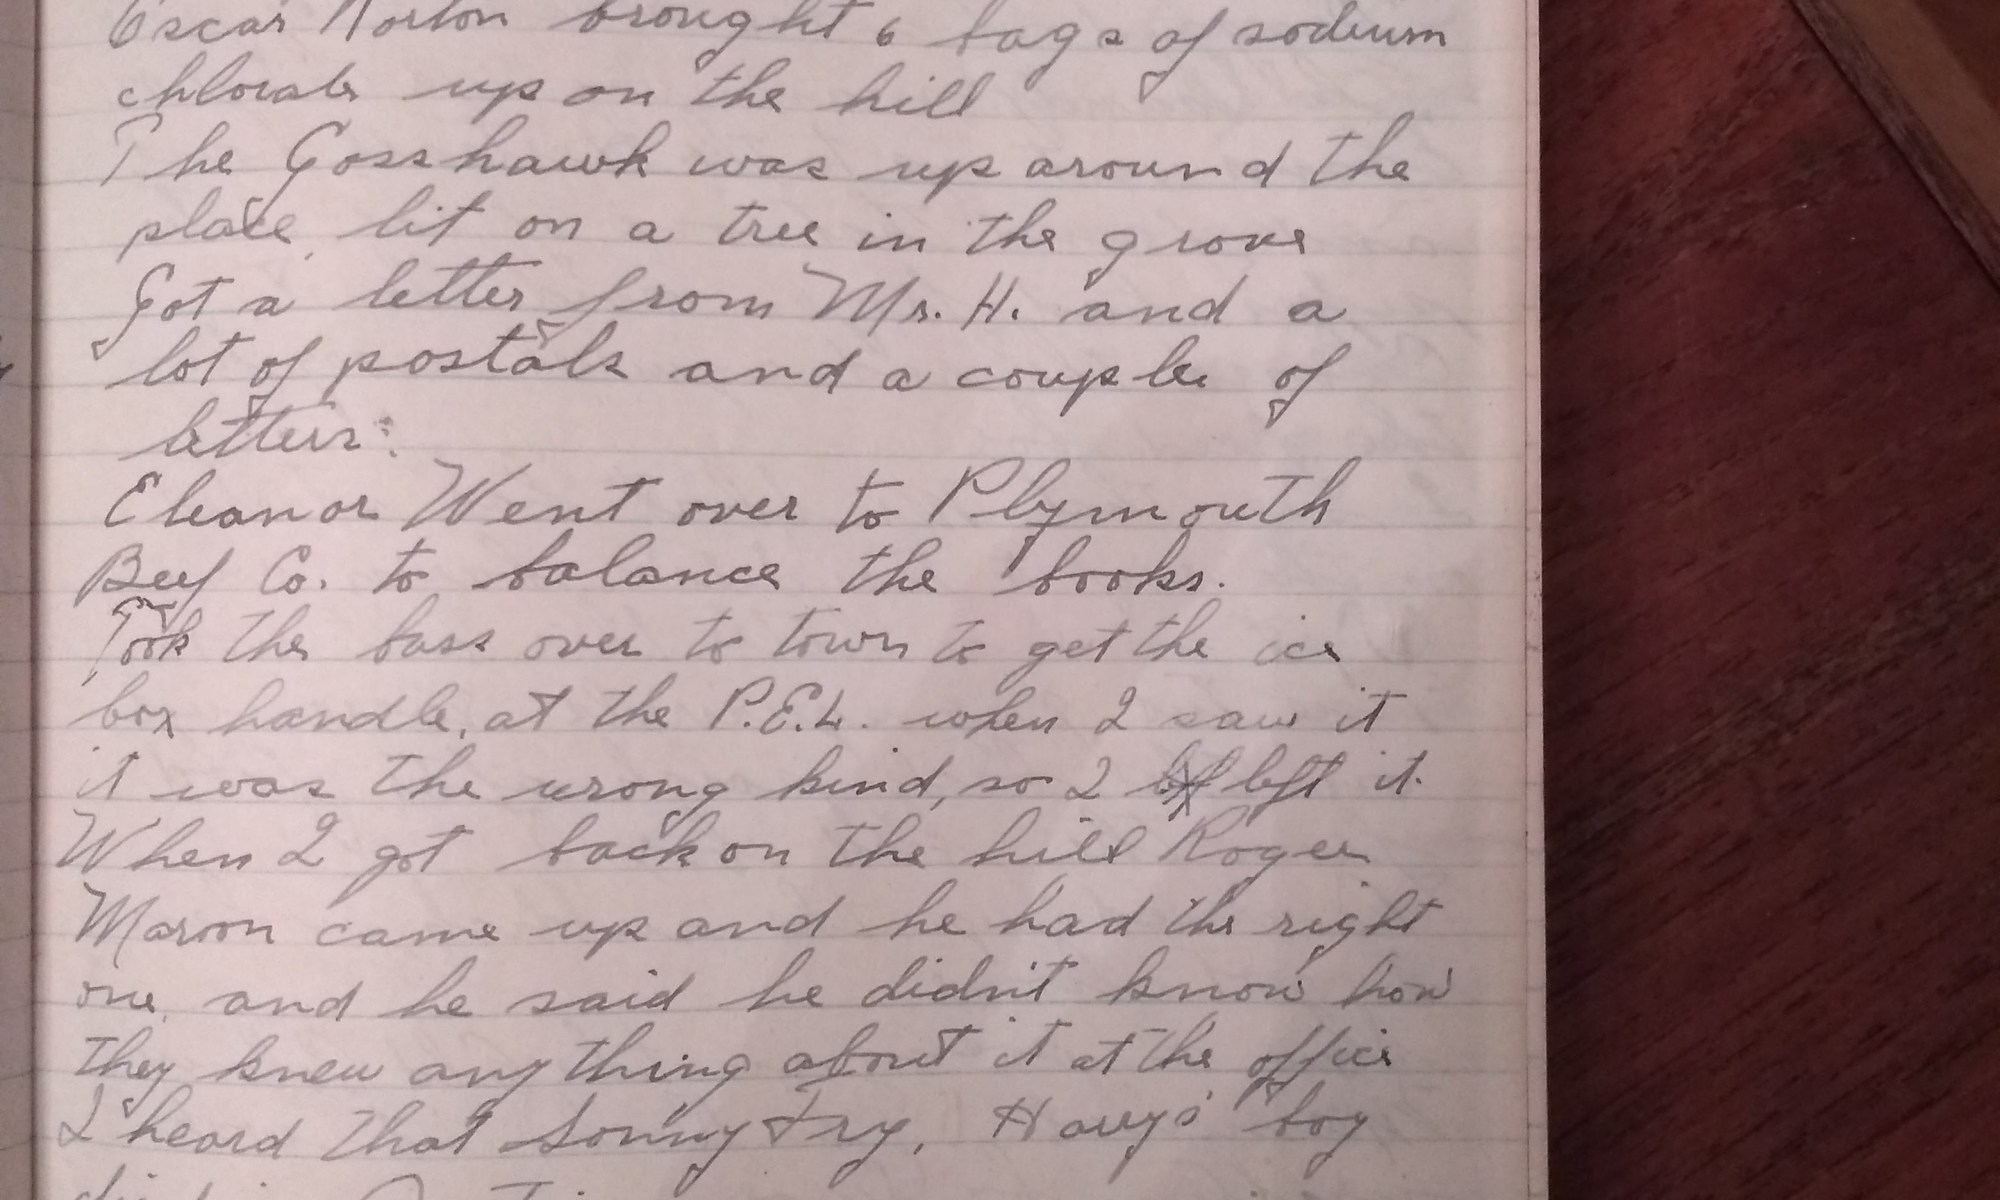 Oscar Norton brought 6 bags of sodium
chlorate up on the hill
The Gosshawk was up around the
place, lit on a tree in the grove
Got a letter from Mr. H. and a
lot of postals and a couple of
letters.
Eleanor Went over to Plymouth
Beef Co. to balance the books.
Took the bass over to town to get the ice
box handle, at the P.E.L. when I saw it
it was the wrong kind, so I left it.
When I got back on the hill Roger
Maroon came up and he had the right
one, and he said he didn't know how
they knew any thing about it at the office
I heard that Sonny Fry, Harry's boy